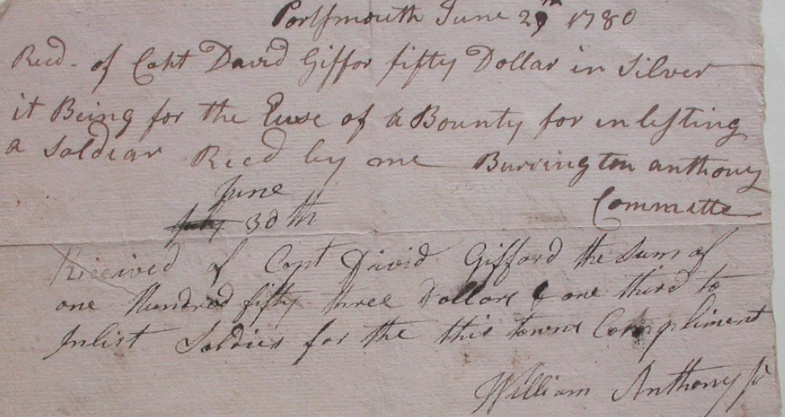 Portsmouth June 29th 1780
Recd. of Capt David Giffor fifty Dollar in Silver
it Being for the Euse of a Bounty for inlesting
a Soldear Recd by me Burrington anthony
Committe
June
July 30th
Received of Capt David Gifford the Sum of
one Hundred fifty three Dollars & one third to
Inlist Soldier for the this towns Compliment
William Anthony Jr